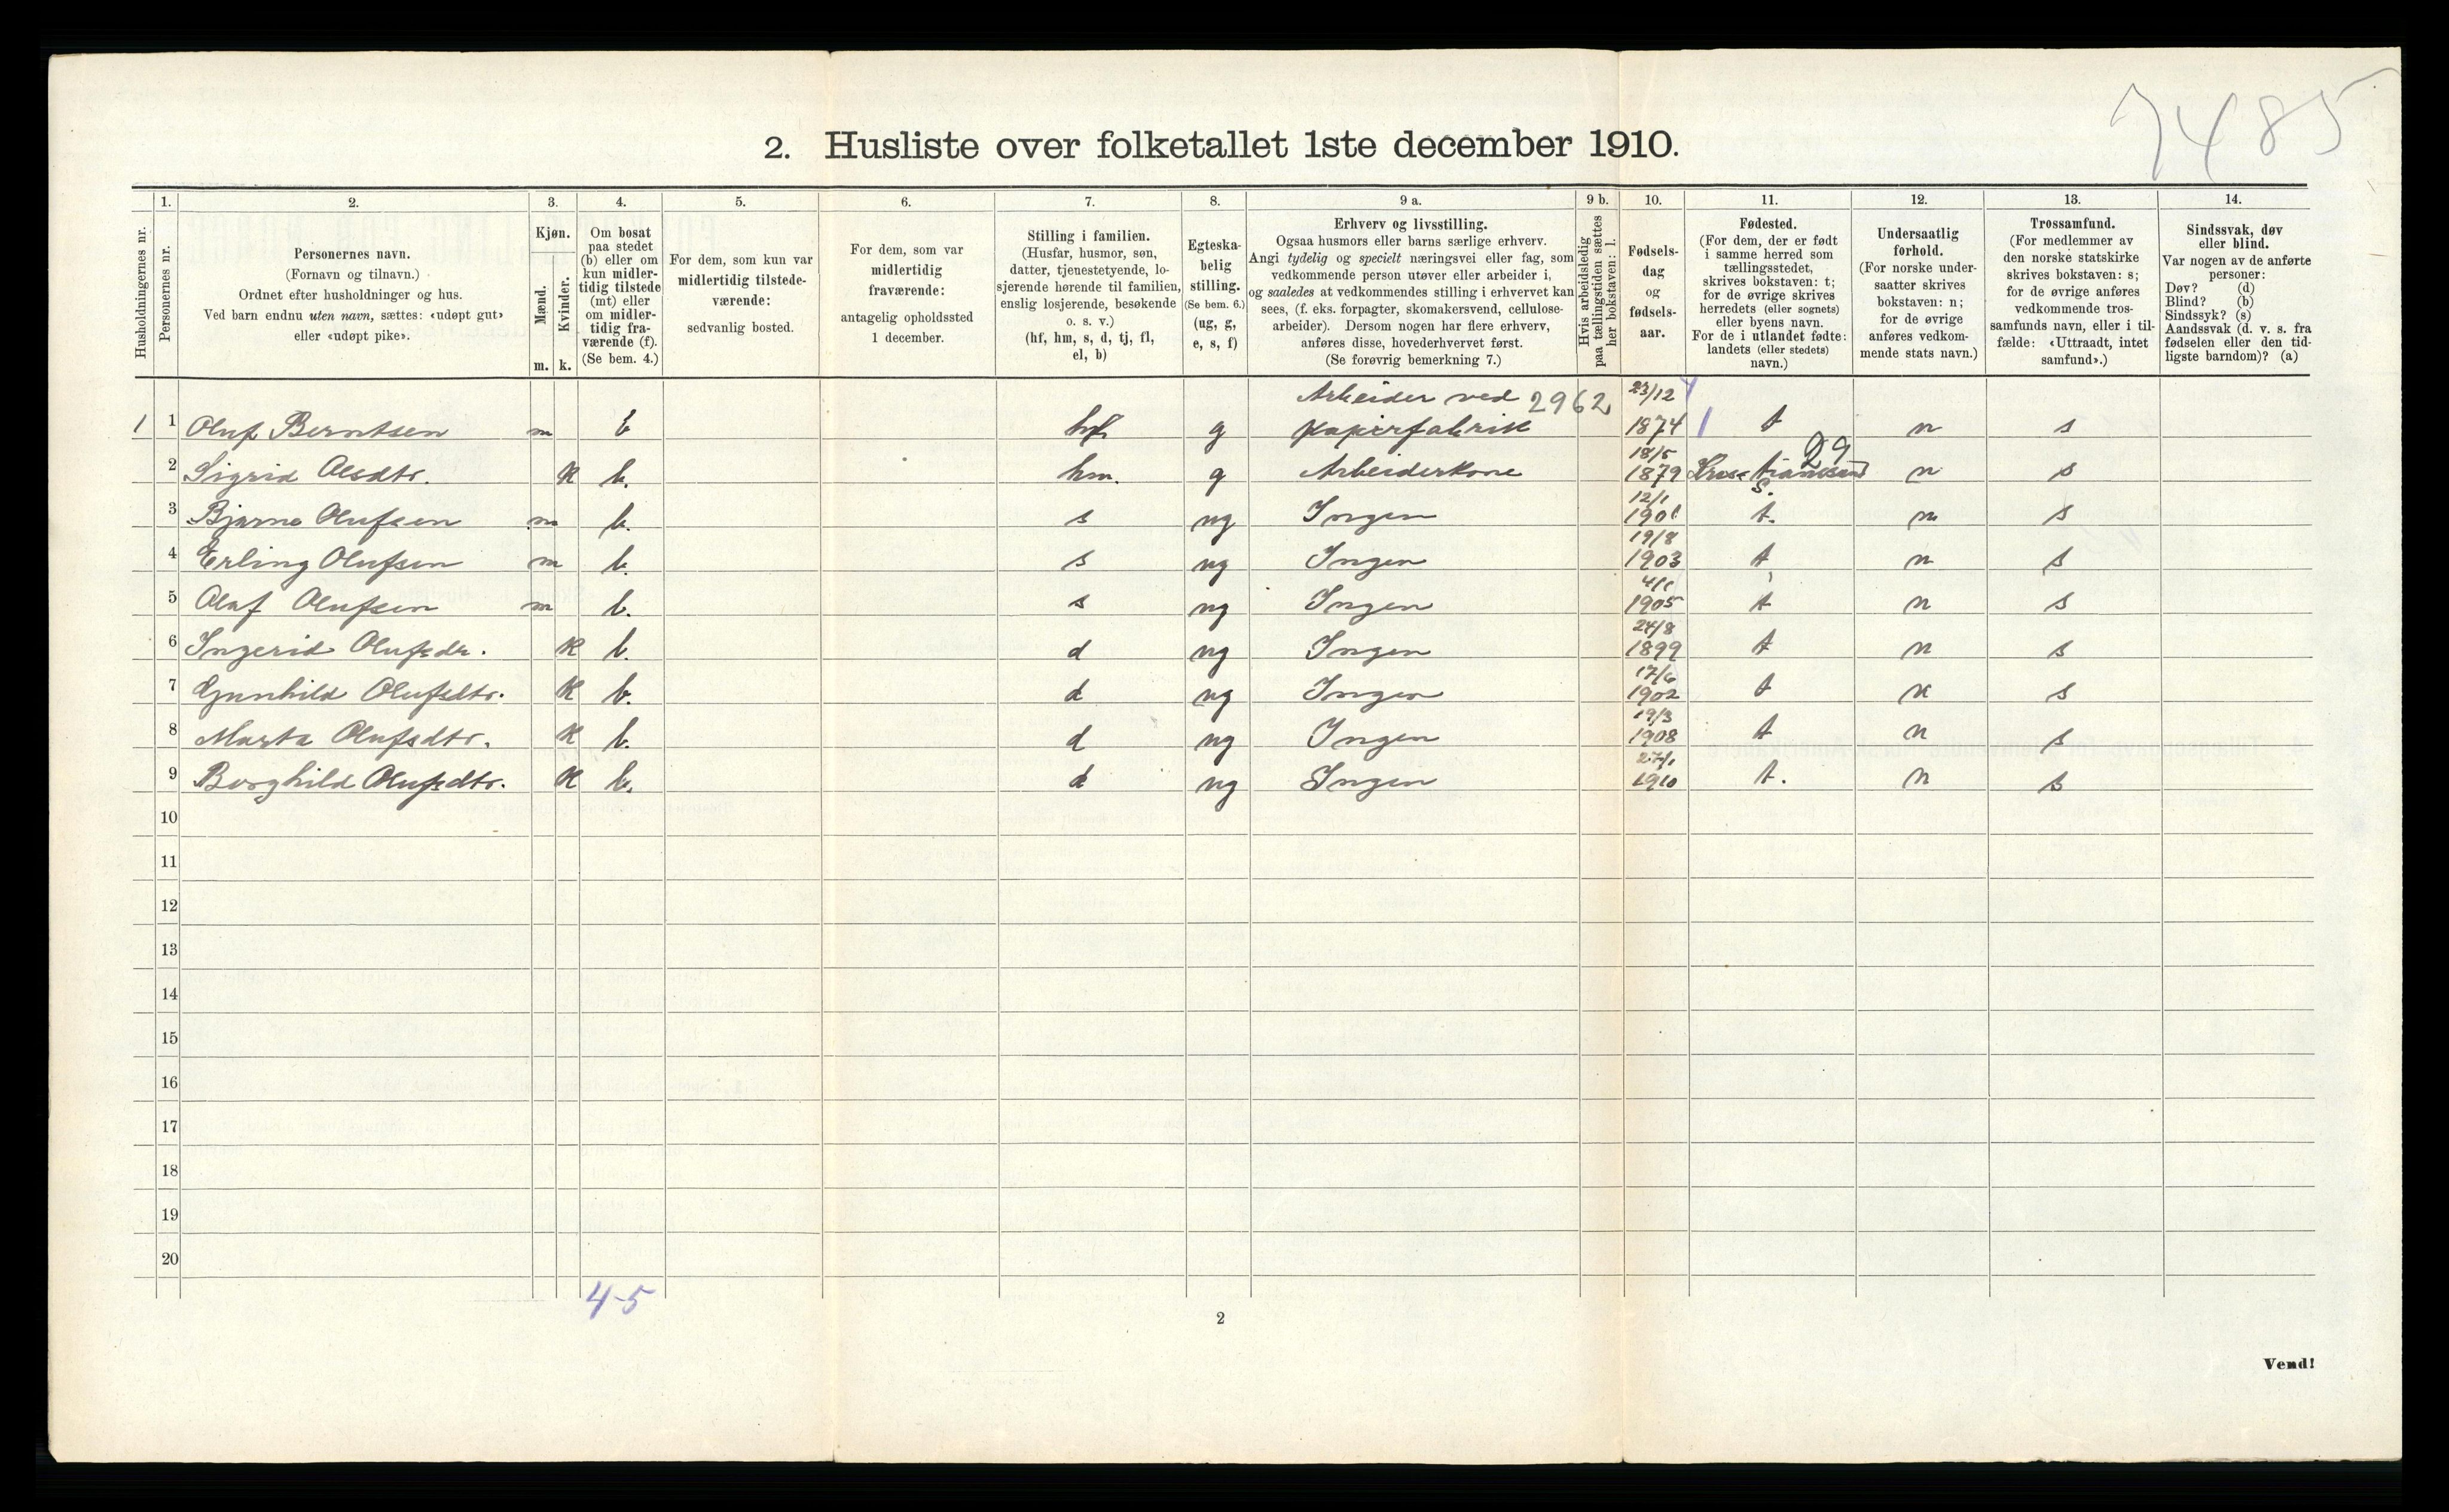 7485
2. Husliste over folketallet 1ste december 1910.
1. 2. 3. 4. 5. 6. 7. 8. 9 a. 9 b. 10. 11. 12. 13. 14.
Husholdningernes nr.
Personernes nr.
Personernes navn.
(Fornavn og tilnavn.)
Ordnet efter husholdninger og hus.
Ved barn endnu uten navn, sættes: «udøpt gut»
eller «udøpt pike».
Kjøn.
Mænd.
Kvinder.
m. k.
Om bosat
paa stedet
(b) eller om
kun midler-
tidig tilstede
(mt) eller
om midler-
tidig fra-
værende (f).
(Se bem. 4.)
For dem, som kun var
midlertidig tilstede-
værende:
sedvanlig bosted.
For dem, som var
midlertidig
fraværende:
antagelig opholdssted
1 december.
Stilling i familien.
(Husfar, husmor, søn,
datter, tjenestetyende, lo-
sjerende hørende til familien,
enslig losjerende, besøkende
o. s. v.)
(hf, hm, s, d, tj, fl,
el, b)
Egteska-
belig
stilling.
(Se bem. 6.)
(ug, g,
e, s, f)
Erhverv og livsstilling.
Ogsaa husmors eller barns særlige erhverv.
Angi tydelig og specielt næringsvei eller fag, som
vedkommende person utøver eller arbeider i,
og saaledes at vedkommendes stilling i erhvervet kan
sees, (f. eks. forpagter, skomakersvend, cellulose-
arbeider). Dersom nogen har flere erhverv,
anføres disse, hovederhvervet først.
(Se forøvrig bemerkning 7.)
Hvis arbeidsledig
paa tællingstiden sættes
her bokstaven: l.
Fødsels-
dag
og
fødsels-
aar.
Fødested.
(For dem, der er født
i samme herred som
tællingsstedet,
skrives bokstaven: t;
for de øvrige skrives
herredets (eller sognets)
eller byens navn.
For de i utlandet fødte:
landets (eller stedets)
navn.)
Undersaatlig
forhold.
(For norske under-
saatter skrives
bokstaven: n;
for de øvrige
anføres vedkom-
mende stats navn.)
Trossamfund.
(For medlemmer av
den norske statskirke
skrives bokstaven: s;
for de øvrige anføres
vedkommende tros-
samfunds navn, eller i til-
fælde: «Uttraadt, intet
samfund».)
Sindssvak, døv
eller blind.
Var nogen av de anførte
personer:
Døv? (d)
Blind? (b)
Sindssyk? (s)
Aandssvak (d. v. s. fra
fødselen eller den tid-
ligste barndom)? (a)
Arbeider ved 2962 23/12
1 1 Oluf Berntsen m b hf g papirfabrik 1874 t n s
18/5 29
2 Sigrid Olsdtr. K b. hm. g Arbeiderkone 1879 n s
12/1 S.
3 Bjarne Olufsen m b. s ug Ingen 1901 t. n s
19/8
4 Erling Olufsen m b. s ug Ingen 1903 t n s
4/1
5 Olaf Olufsen m b. s ug Ingen 1905 t n s
24/8
6 Ingerid Olufsdr. K b. d ug Ingen 1899 t n s
17/6
7 Gunhild Olufsdtr. K b. d ug Ingen 1902 t n s
19/3
8 Marta Olufsdtr. K b. d ug Ingen 1908 t n s
27/1
9 Borghild Olufsdtr. K b. d ug Ingen 1910 t. n s
10
11
12
13
14
15
16
17
18
19
20
4-5
2
Vend!